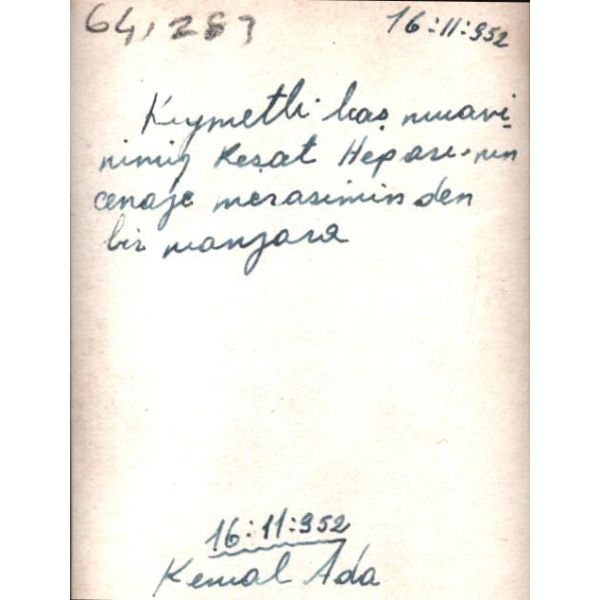 64, 283
16:11:952
Kıymetli baş muavi-
nimiz Reşat Hepası-nın
cenaze merasiminden
bir manzara
16:11:952
Kemal Ada